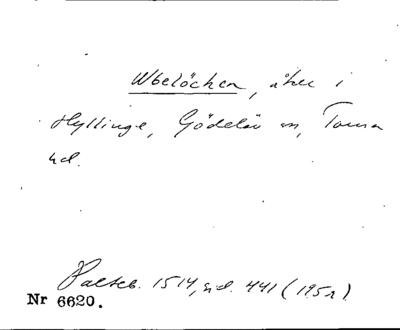 Wbelöcken, åker i
Hyllinge, Gödelöv sn, Torna
hd.
Palteb. 1514, sid. 441 (1952)
Nr 6620.